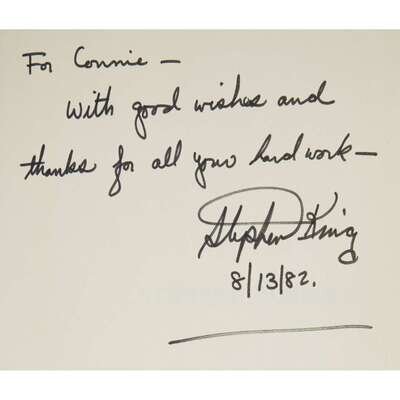 For Connie —
with good wishes and
thanks for all your hard work —
Stephen King
8/13/82.